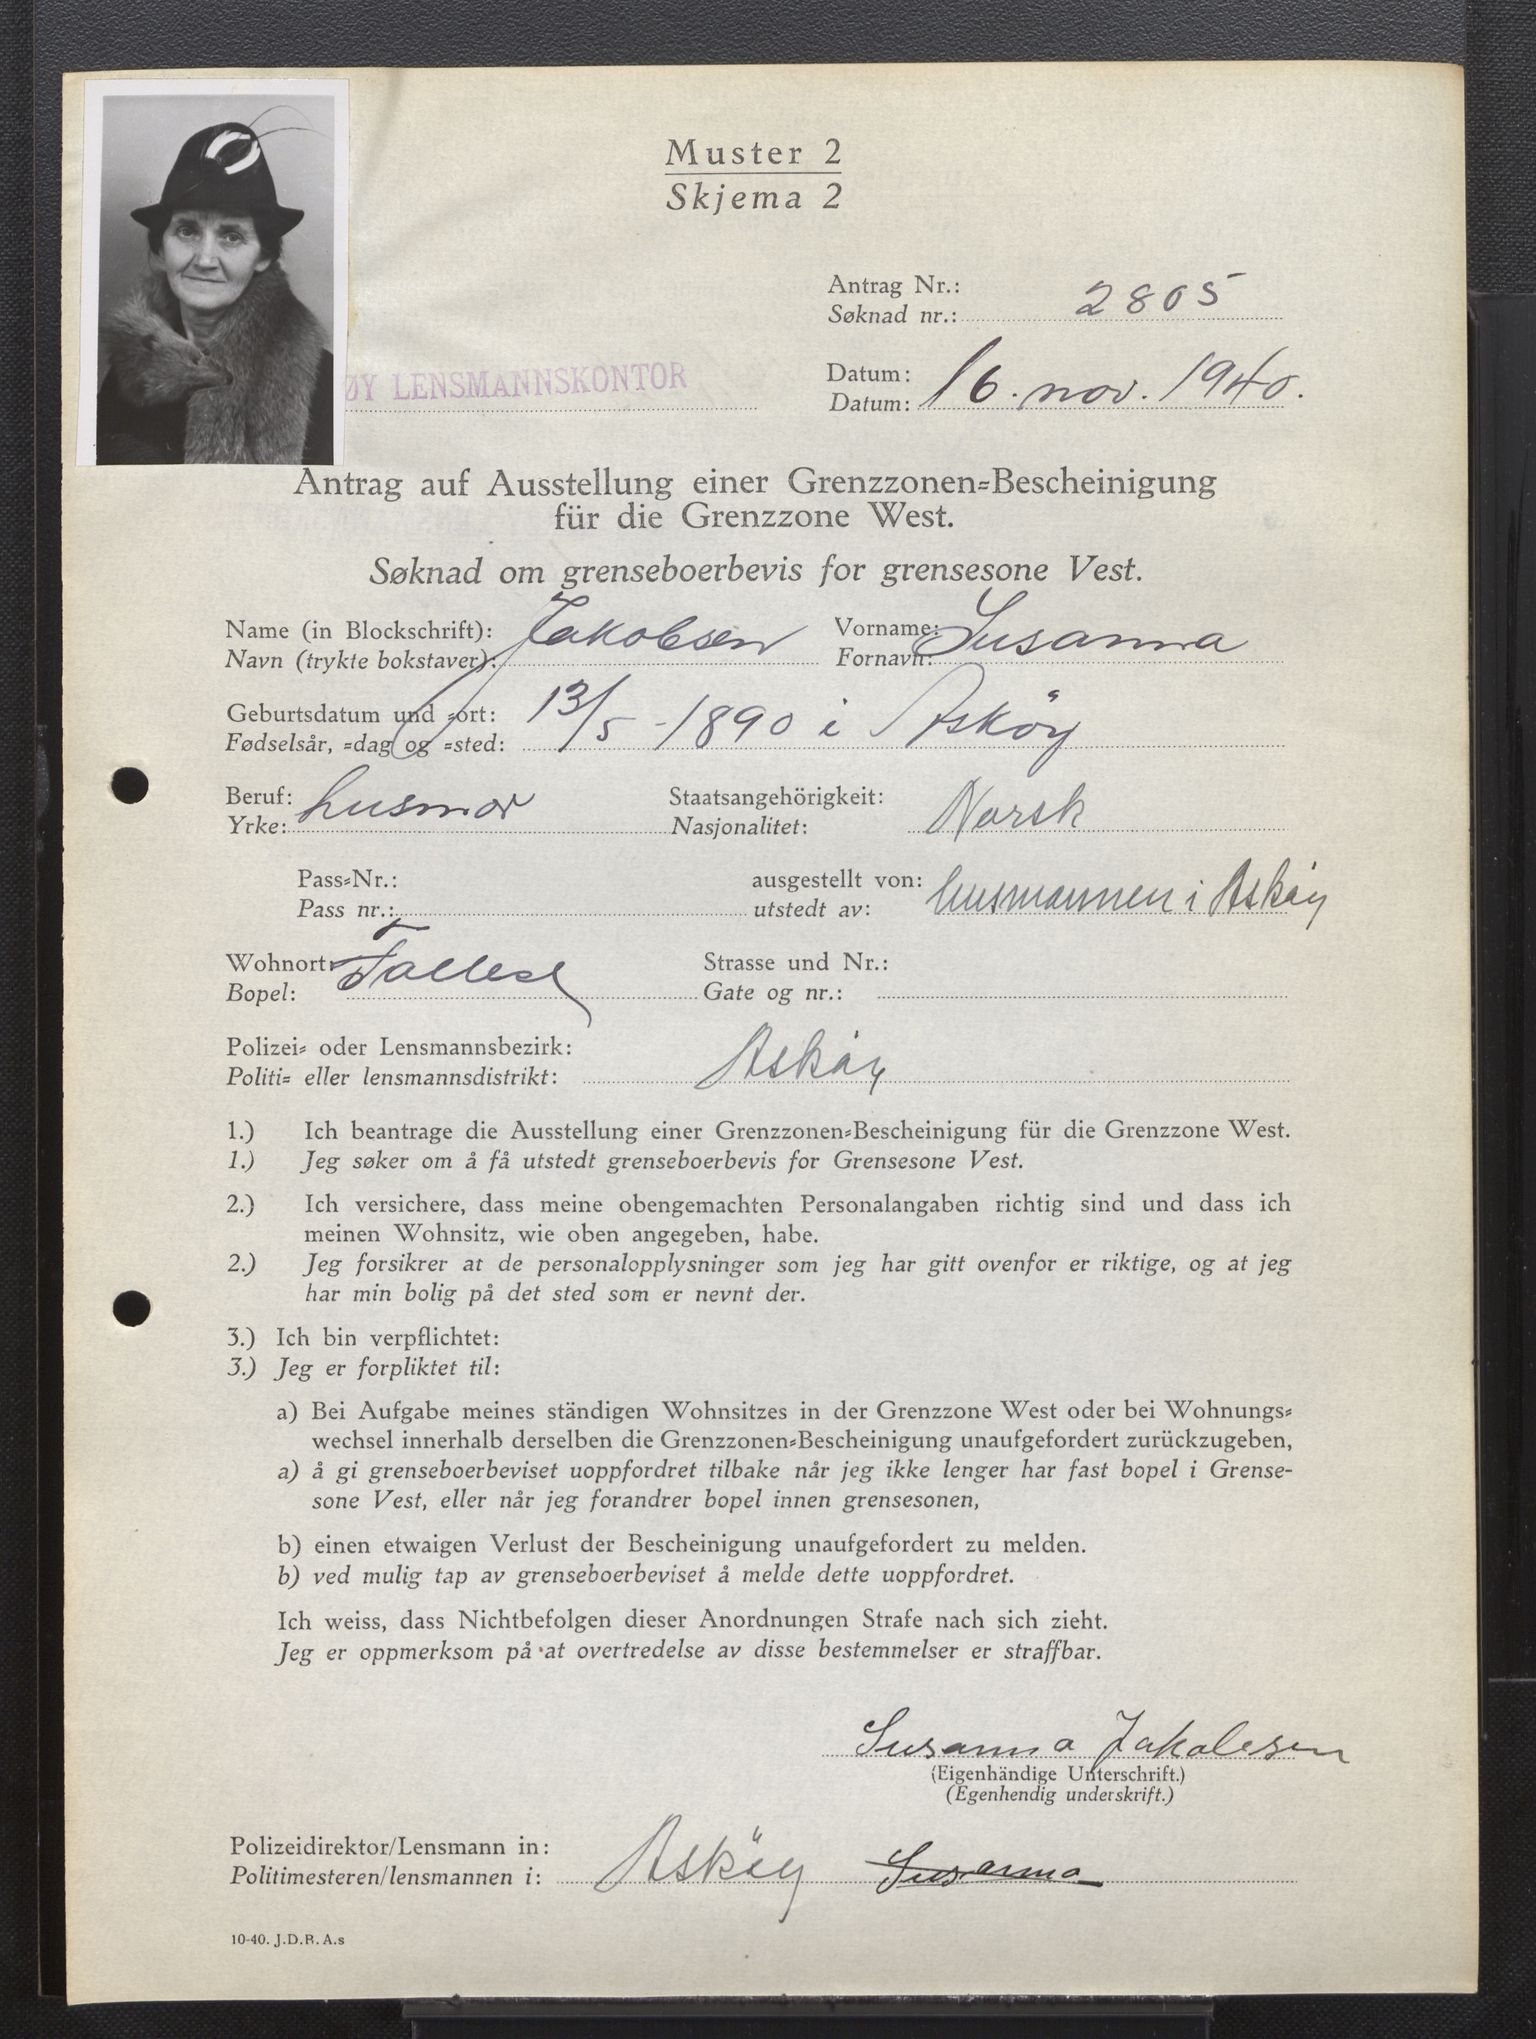 Muster 2
Skjema 2
Antrag Nr.:
Søknad nr.: 2805
ØY LENSMANNSKONTOR
Datum:
Datum: 16. nov. 1940.
Antrag auf Ausstellung einer Grenzzonen=Bescheinigung
für die Grenzzone West.
Søknad om grenseboerbevis for grensesone Vest.
Name (in Blockschrift): Jakobsen Vorname: Susanna
Navn (trykte bokstaver): Fornavn:
Geburtsdatum und =ort: 13/5 - 1890 i Asköy
Fødselsår, =dag og =sted:
Beruf: husmor Staatsangehörigkeit: Norsk
Yrke: Nasjonalitet:
Pass=Nr.: ausgestellt von: lensmannen i Askøy
Pass nr.: utstedt av:
Wohnort: Strasse und Nr.:
Bopel: Gate og nr.:
Polizei= oder Lensmannsbezirk:
Politi= eller lensmannsdistrikt: Askøy
1.) Ich beantrage die Ausstellung einer Grenzzonen=Bescheinigung für die Grenzzone West.
1.) Jeg søker om å få utstedt grenseboerbevis for Grensesone Vest.
2.) Ich versichere, dass meine obengemachten Personalangaben richtig sind und dass ich
meinen Wohnsitz, wie oben angegeben, habe.
2.) Jeg forsikrer at de personalopplysninger som jeg har gitt ovenfor er riktige, og at jeg
har min bolig på det sted som er nevnt der.
3.) Ich bin verpflichtet:
3.) Jeg er forpliktet til:
a) Bei Aufgabe meines ständigen Wohnsitzes in der Grenzzone West oder bei Wohnungs=
wechsel innerhalb derselben die Grenzzonen=Bescheinigung unaufgefordert zurückzugeben,
a) å gi grenseboerbeviset uoppfordret tilbake når jeg ikke lenger har fast bopel i Grense-
sone Vest, eller når jeg forandrer bopel innen grensesonen,
b) einen etwaigen Verlust der Bescheinigung unaufgefordert zu melden.
b) ved mulig tap av grenseboerbeviset å melde dette uoppfordret.
Ich weiss, dass Nichtbefolgen dieser Anordnungen Strafe nach sich zieht.
Jeg er oppmerksom på at overtredelse av disse bestemmelser er straffbar.
Susanna Jakobsen
(Eigenhändige Unterschrift.)
(Egenhendig underskrift.)
Polizeidirektor/Lensmann in:
Politimesteren/lensmannen i: Asköy Susanna
10-40. J.D.R.A.s